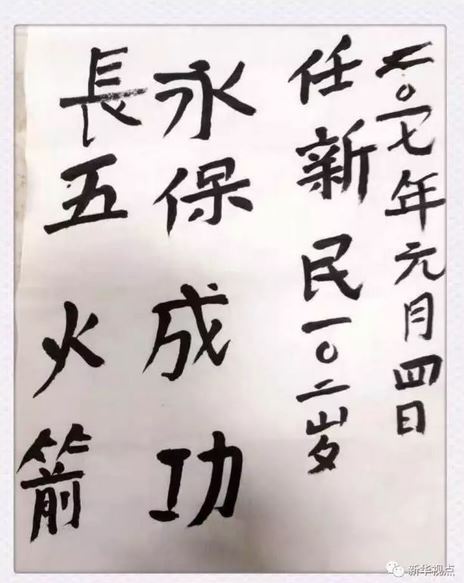 長五火箭
永保成功
任新民一〇二岁
二〇一七年元月四日
新华视点